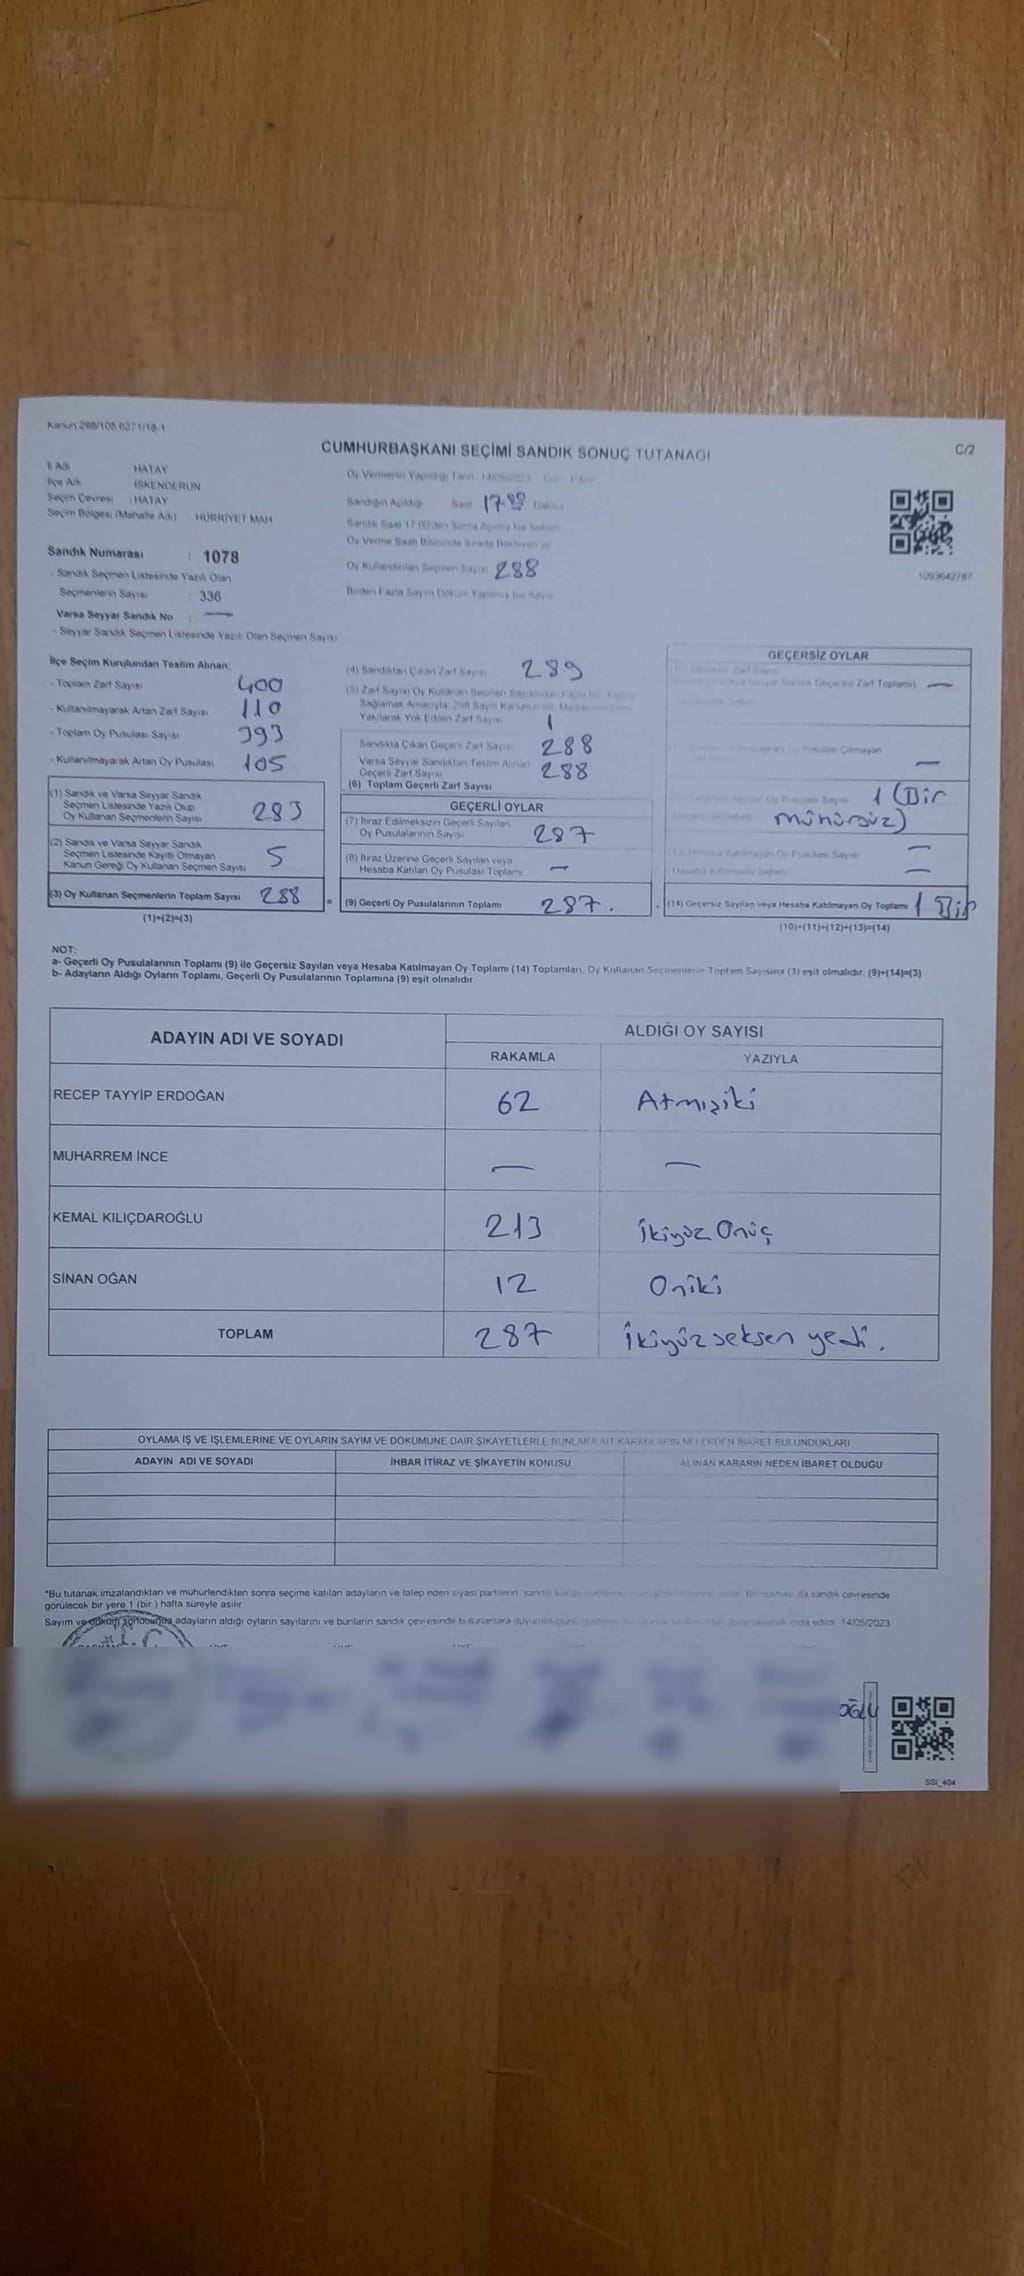 Kanun:298/105,6271/18-1
CUMHURBAŞKANI SEÇİMİ SANDIK SONUÇ TUTANAĞI
C/2
İl Adı HATAY
İlçe Adı İSKENDERUN
Seçim Çevresi : HATAY
Seçim Bölgesi (Mahalle Adı) : HÜRRİYET MAH
Sandık Numarası : 1078
- Sandık Seçmen Listesinde Yazılı Olan
Seçmenlerin Sayısı : 336
Varsa Seyyar Sandık No : —
- Seyyar Sandık Seçmen Listesinde Yazılı Olan Seçmen Sayısı
Oy Vermenin Yapıldığı Tarih 14/05/2023
Sandığın Açıldığı Saat 17 00 Dakika
Sandık Saat 17:00'den Sonra Açılmış İse Sebebi
Oy Verme Saati Bitiminde Sırada Bekleyen ve
Oy Kullandırılan Seçmen Sayısı 288
Birden Fazla Sayım Döküm Yapılmış İse Sayısı
1093642787
İlçe Seçim Kurulundan Teslim Alınan:
- Toplam Zarf Sayısı 400
- Kullanılmayarak Artan Zarf Sayısı 110
- Toplam Oy Pusulası Sayısı 393
- Kullanılmayarak Artan Oy Pusulası 105
(1) Sandık ve Varsa Seyyar Sandık
Seçmen Listesinde Yazılı Olup
Oy Kullanan Seçmenlerin Sayısı 283
(2) Sandık ve Varsa Seyyar Sandık
Seçmen Listesinde Kayıtlı Olmayan
Kanun Gereği Oy Kullanan Seçmen Sayısı 5
(3) Oy Kullanan Seçmenlerin Toplam Sayısı 288
(1)+(2)=(3)
(4) Sandıktan Çıkan Zarf Sayısı 289
(5) Zarf Sayısı Oy Kullanan Seçmen Sayısından Fazla İse, Eşitliği
Sağlamak Amacıyla, 298 Sayılı Kanunun 98. Maddesine Göre
Yakılarak Yok Edilen Zarf Sayısı 1
Sandıkta Çıkan Geçerli Zarf Sayısı 288
Varsa Seyyar Sandıktan Teslim Alınan
Geçerli Zarf Sayısı 288
(6) Toplam Geçerli Zarf Sayısı
GEÇERLİ OYLAR
(7) İtiraz Edilmeksizin Geçerli Sayılan
Oy Pusulalarının Sayısı 287
(8) İtiraz Üzerine Geçerli Sayılan veya
Hesaba Katılan Oy Pusulası Toplamı —
= (9) Geçerli Oy Pusulalarının Toplamı 287.
GEÇERSİZ OYLAR
Geçersiz Zarf Toplamı) —
Oy Pusulası Çıkmayan
—
Oy Pusulası Sayısı 1 (Bir
mühürsüz)
Hesaba Katılmayan Oy Pusulası Sayısı —
Hesaba Katılmama Sebebi —
(14) Geçersiz Sayılan veya Hesaba Katılmayan Oy Toplamı 1 Bir
(10)+(11)+(12)+(13)=(14)
NOT:
a- Geçerli Oy Pusulalarının Toplamı (9) ile Geçersiz Sayılan veya Hesaba Katılmayan Oy Toplamı (14) Toplamları, Oy Kullanan Seçmenlerin Toplam Sayısına (3) eşit olmalıdır. (9)+(14)=(3)
b- Adayların Aldığı Oyların Toplamı, Geçerli Oy Pusulalarının Toplamına (9) eşit olmalıdır.
ADAYIN ADI VE SOYADI ALDIĞI OY SAYISI
RAKAMLA YAZIYLA
RECEP TAYYİP ERDOĞAN 62 Atmışiki
MUHARREM İNCE — —
KEMAL KILIÇDAROĞLU 213 İkiyüz Onüç
SİNAN OĞAN 12 Oniki
TOPLAM 287 İkiyüz seksen yedi.
OYLAMA İŞ VE İŞLEMLERİNE VE OYLARIN SAYIM VE DÖKÜMÜNE DAİR ŞİKAYETLERLE BUNLARA AİT KARARLARIN NELERDEN İBARET BULUNDUKLARI
ADAYIN ADI VE SOYADI İHBAR İTİRAZ VE ŞİKAYETİN KONUSU ALINAN KARARIN NEDEN İBARET OLDUĞU
*Bu tutanak imzalandıktan ve mühürlendikten sonra seçime katılan adayların ve talep eden siyasi partilerin sandık çevresinde
görülecek bir yere 1 (bir) hafta süreyle asılır.
Sayım ve döküm sonucunda adayların aldığı oyların sayılarını ve bunların sandık çevresinde bulunanlara duyurulduğunu 14/05/2023
OĞLU
SSI_404